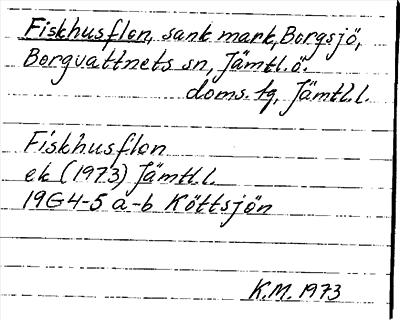 Fiskhusflon, sank mark, Borgsjö,
Borgvattnets sn, Jämtl.ö.
doms.tg, Jämtl.l.
Fiskhusflon
ek (1973) Jämtl.l.
19G4-5 a-b Köttsjön
K.M. 1973